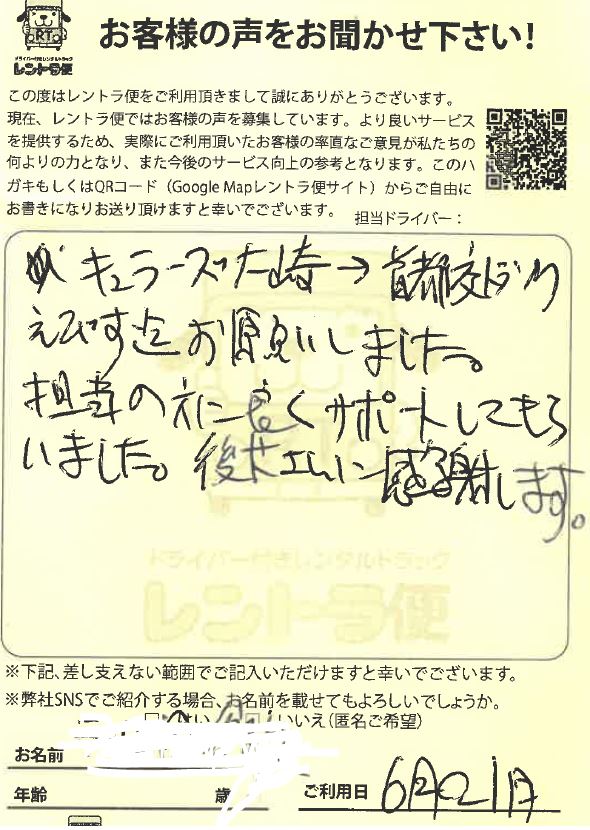 RT
ドライバー付きレンタルトラック
レントラ便
お客様の声をお聞かせ下さい!
この度はレントラ便をご利用頂きまして誠にありがとうございます。
現在、レントラ便ではお客様の声を募集しています。より良いサービス
を提供するため、実際にご利用いただいたお客様の率直なご意見が私たちの
何よりの力となり、また今後のサービス向上の参考となります。このハ
ガキもしくはQRコード(Google Mapレントラ便サイト)からご自由に
お書きになりお送り頂けますと幸いでございます。
担当ドライバー:
キュラーズ大崎→首都交
えびす迄お願いしました。
担当の 良くサポートしてもら
いました。後 感謝します。
ドライバー付きレンタルトラック
レントラ便
※下記、差し支えない範囲でご記入いただけますと幸いでございます。
※弊社SNSでご紹介する場合、お名前を載せてもよろしいでしょうか。
□はい □いいえ(匿名ご希望)
お名前
年齢 歳 ご利用日 6月21日